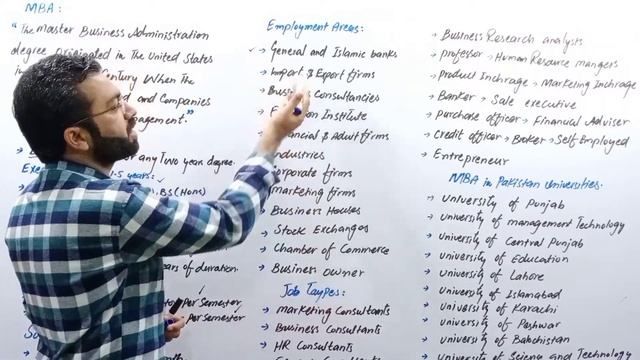 MBA:
"The Master Business Administration
degree originated in The United States
Century When The
and Companies
nagement."
or any Two year degree.
Exe
1.5 years:
BS(HONS)
ears of duration.
per semester
per semester
Employment Areas:
✓→ General and Islamic banks
→ Import & Export firms
→ Business Consultancies
→ E on Institute
→ Financial & Audit firms
→ Industries
→ Corporate firms
→ Marketing firms
→ Business Houses
→ Stock Exchanges
→ Chamber of Commerce
→ Business owner
Job Taypes:
→ Marketing Consultants
→ Business Consultants
→ HR Consultants
→ Business Research analysts
→ professor → Human Resource mangers
→ Product Inchrage → Marketing Inchrage
→ Banker → Sale executive
→ Purchase officer → Financial Adviser
→ Credit officer → Broker → Self Employed
→ Entrepreneur
MBA in Pakistan Universities.
→ University of Punjab
→ University of management Technology
→ University of Central Punjab
→ University of Education
→ University of Lahore
→ University of Islamabad
→ University of Karachi
→ University of Peshwar
→ University of Balochistan
→ University of Science and Technology